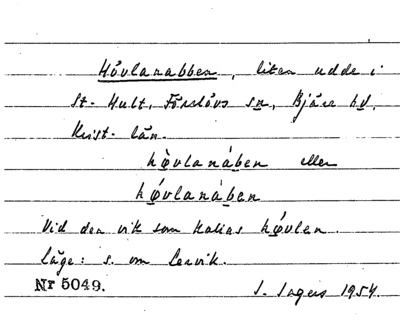 Hovlanabben, liten udde i
St. Hult, Förslövs sn, Bjäre hd,
Krist. län.
hǫ̀vlanábe̱n eller
hǫ́vlanàbe̱n
Vid den vik som kallas hǫvlen.
Läge: s. om Lervik.
Nr 5049.
I. Ingers 1954.